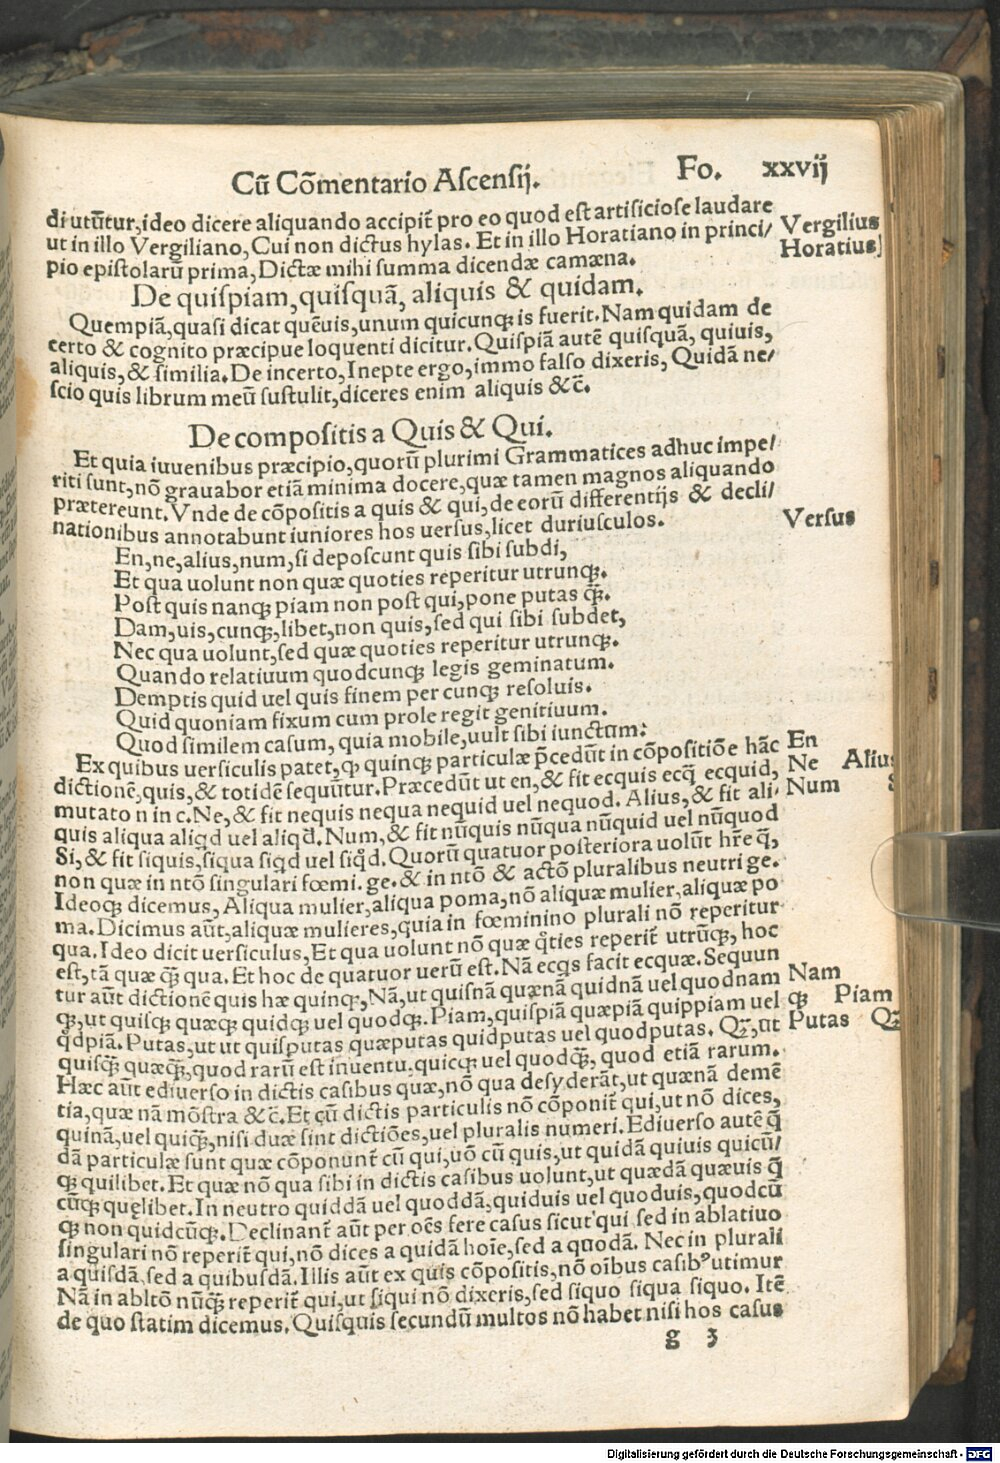 Cū Cōmentario Ascensij. Fo. xxvij
di utūtur, ideo dicere aliquando accipit̄ pro eo quod est artificiose laudare
ut in illo Vergiliano, Cui non dictus hylas. Et in illo Horatiano in princi/
pio epistolarū prima, Dictæ mihi summa dicendæ camæna.
Vergilius
Horatius
De quispiam, quisquā, aliquis & quidam.
Quempiā, quasi dicat quēuis, unum quicunqꝫ is fuerit. Nam quidam de
certo & cognito præcipue loquenti dicitur. Quispiā autē quisquā, quiuis,
aliquis, & similia. De incerto, Inepte ergo, immo falso dixeris, Quidā ne/
scio quis librum meū sustulit, diceres enim aliquis &c̄.
De compositis a Quis & Qui.
Et quia iuuenibus præcipio, quorū plurimi Grammatices adhuc impe/
riti sunt, nō grauabor etiā minima docere, quæ tamen magnos aliquando
prætereunt. Vnde de cōpositis a quis & qui, de eorū differentijs & decli/
nationibus annotabunt iuniores hos uersus, licet duriusculos.
Versus
En, ne, alius, num, si deposcunt quis sibi subdi,
Et qua uolunt non quæ quoties reperitur utrunqꝫ.
Post quis nanqꝫ piam non post qui, pone putas qꝫ̄.
Dam, uis, cunqꝫ, libet, non quis, sed qui sibi subdet,
Nec qua uolunt, sed quæ quoties reperitur utrunqꝫ.
Quando relatiuum quodcunqꝫ legis geminatum.
Demptis quid uel quis finem per cunqꝫ resoluis.
Quid quoniam fixum cum prole regit genitiuum.
Quod similem casum, quia mobile, uult sibi iunctum:
Ex quibus uersiculis patet, qꝫ quinqꝫ particulæ p̄cedūt in cōpositiōe hāc
dictionē, quis, & totidē sequūtur. Præcedūt ut en, & fit ecquis ecq̄ ecquid,
mutato n in c. Ne, & fit nequis nequa nequid uel nequod. Alius, & fit ali/
quis aliqua aliqd uel aliqd̄. Num, & fit nūquis nūqua nūquid uel nūquod
Si, & fit siquis, siqua siqd uel siqd̄. Quorū quatuor posteriora uolūt hr̄e q̄,
non quæ in ntō singulari fœmi. ge. & in ntō & actō pluralibus neutri ge.
Ideoqꝫ dicemus, Aliqua mulier, aliqua poma, nō aliquæ mulier, aliquæ po
ma. Dicimus aūt, aliquæ mulieres, quia in fœminino plurali nō reperitur
qua. Ideo dicit uersiculus, Et qua uolunt nō quæ q̊ties reperit̄ utrūqꝫ, hoc
est, tā quæ qꝫ̄ qua. Et hoc de quatuor uerū est. Nā ecqs facit ecquæ. Sequun
tur aūt dictionē quis hæ quinqꝫ, Nā, ut quisnā quænā quidnā uel quodnam
qꝫ, ut quisqꝫ quæqꝫ quidqꝫ uel quodqꝫ. Piam, quispiā quæpiā quippiam uel
qd̄piā. Putas, ut ut quisputas quæputas quidputas uel quodputas. Qꝫ̄, ut
quisqꝫ̄ quæqꝫ̄, quod rarū est inuentu. quicqꝫ uel quodqꝫ̄, quod etiā rarum.
Hæc aūt ediuerso in dictis casibus quæ, nō qua desyderāt, ut quænā demē
tia, quæ nā mōstra &c̄. Et cū dictis particulis nō cōponit̄ qui, ut nō dices,
quinā, uel quiqꝫ̄, nisi duæ sint dictiōes, uel pluralis numeri. Ediuerso autē q̄
dā particulæ sunt quæ cōponunt̄ cū qui, uō cū quis, ut quidā quiuis quicū/
qꝫ quilibet. Et quæ nō qua sibi in dictis casibus uolunt, ut quædā quæuis q̄
cūqꝫ quęlibet. In neutro quiddā uel quoddā, quiduis uel quoduis, quodcū
qꝫ non quidcūqꝫ. Declinant̄ aūt per oēs fere casus sicut qui sed in ablatiuo
singulari nō reperit̄ qui, nō dices a quidā hoīe, sed a quodā. Nec in plurali
a quisdā, sed a quibusdā. Illis aūt ex quis cōpositis, nō oībus casibꝰ utimur
Nā in abltō nūqꝫ̄ reperit̄ qui, ut siqui nō dixeris, sed siquo siqua siquo. Itē
de quo statim dicemus. Quisquis secundū multos nō habet nisi hos casus
En
Ne Alius
Num S
Nam
qꝫ Piam
Putas Qꝫ
g 3
Digitalisierung gefördert durch die Deutsche Forschungsgemeinschaft - DFG